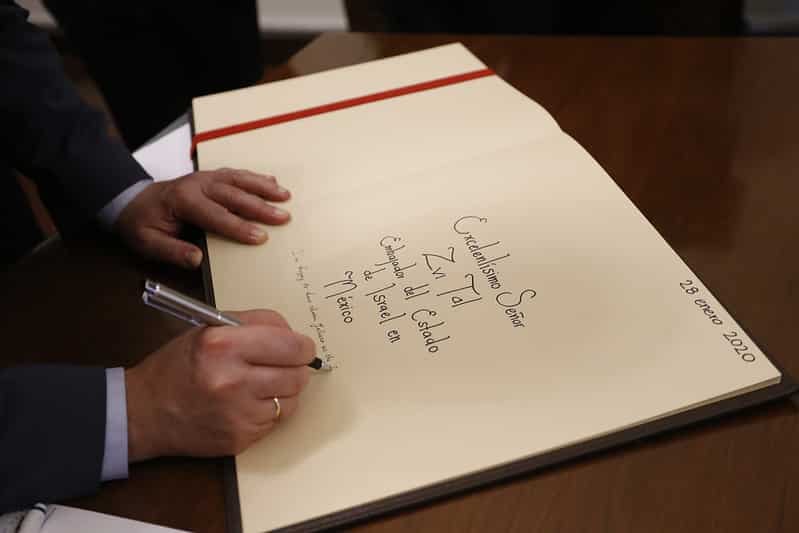 28 enero 2020
Excelentísimo Señor
Zvi Tal
Embajador del Estado
de Israel en
México
I am happy to